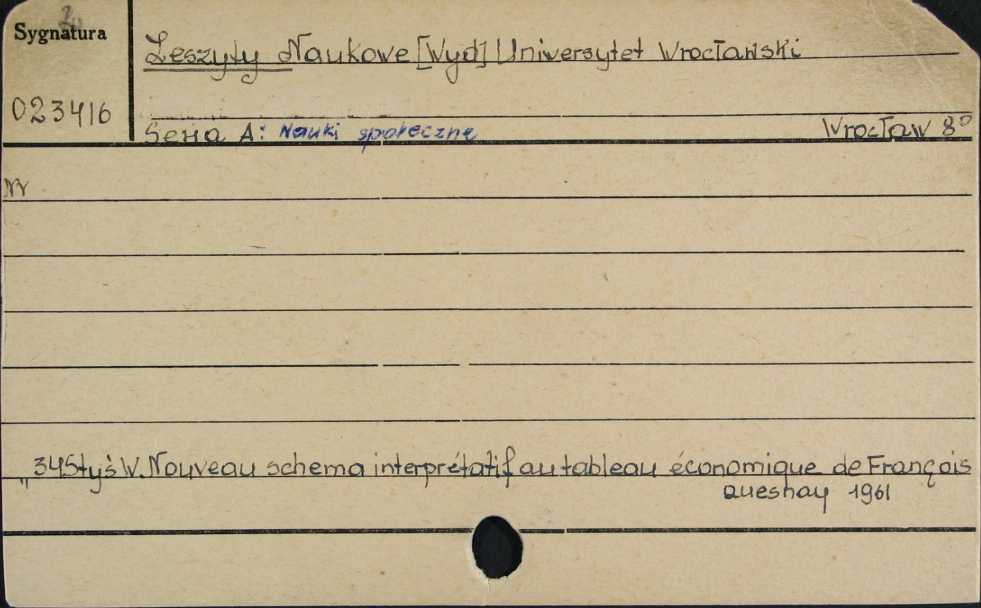 Sygnatura
023416
Zeszyty Naukowe [Wyd] Uniwersytet Wrocławski
Seria A: Nauki społeczne Wrocław 8°
Nr
" 34 Styś W. Nouveau schema interprétatif au tableau économique de François
Quesnay 1961